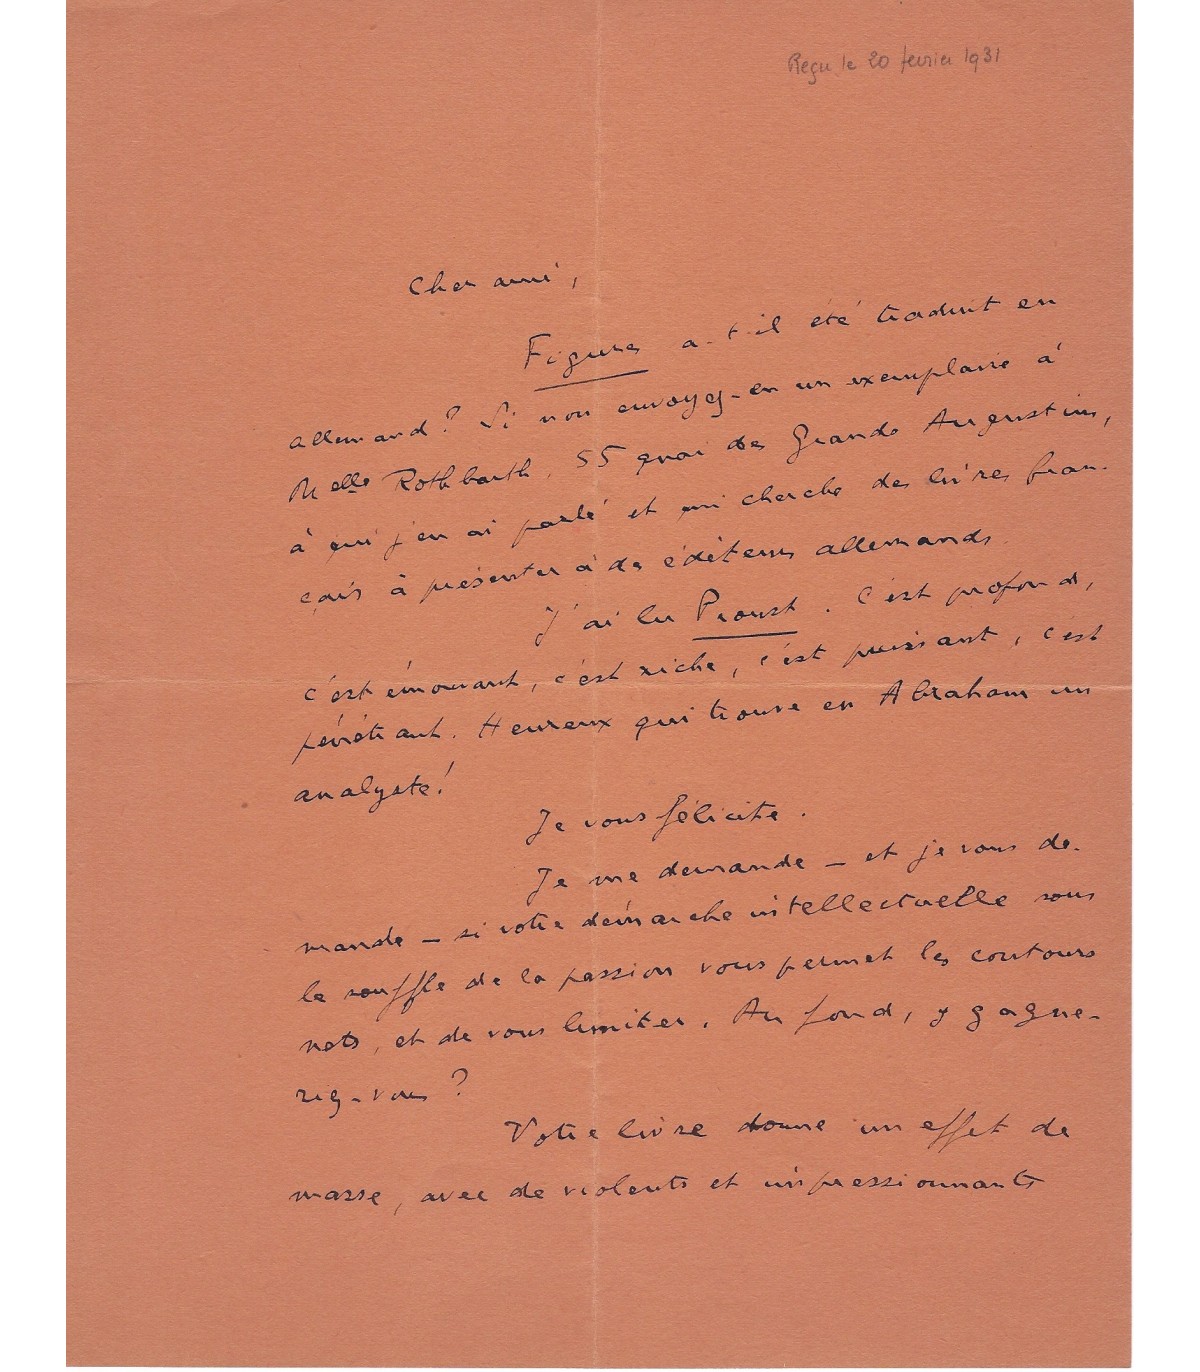 Reçu le 20 fevrier 1931
Cher ami,
Figures a-t-il été traduit en
allemand? Si non envoyez-en un exemplaire à
Melle Rothbarth, 55 quai des Grands Augustins,
à qui j'en ai parlé et qui cherche des livres fran-
çais à présenter à des éditeurs allemands.
J'ai lu Proust. C'est profond,
c'est émouvant, c'est riche, c'est puissant, c'est
pénétrant. Heureux qui trouve en Abraham un
analyste!
Je vous félicite.
Je me demande – et je vous de-
mande – si votre démarche intellectuelle sous
le souffle de la passion vous permet les contours
nets, et de vous limiter. Au fond, y gagne-
rez-vous?
Votre livre donne un effet de
masse, avec de violents et impressionnants